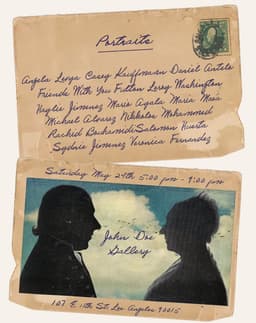 Portraits
Angela Leyva Casey Kauffmann Daniel Antelo
Friends With You Fulton Leroy Washington
Haylie Jimenez Mario Ayala Maria Maea
Michael Alvarez Nikkolos Mohammed
Rachid Bouhamidi Salomon Huerta
Sydnie Jimenez Veronica Fernandez
Saturday May 24th 5:00 pm - 9:00 pm
John Doe
Gallery
107 E 11th St. Los Angeles 90015